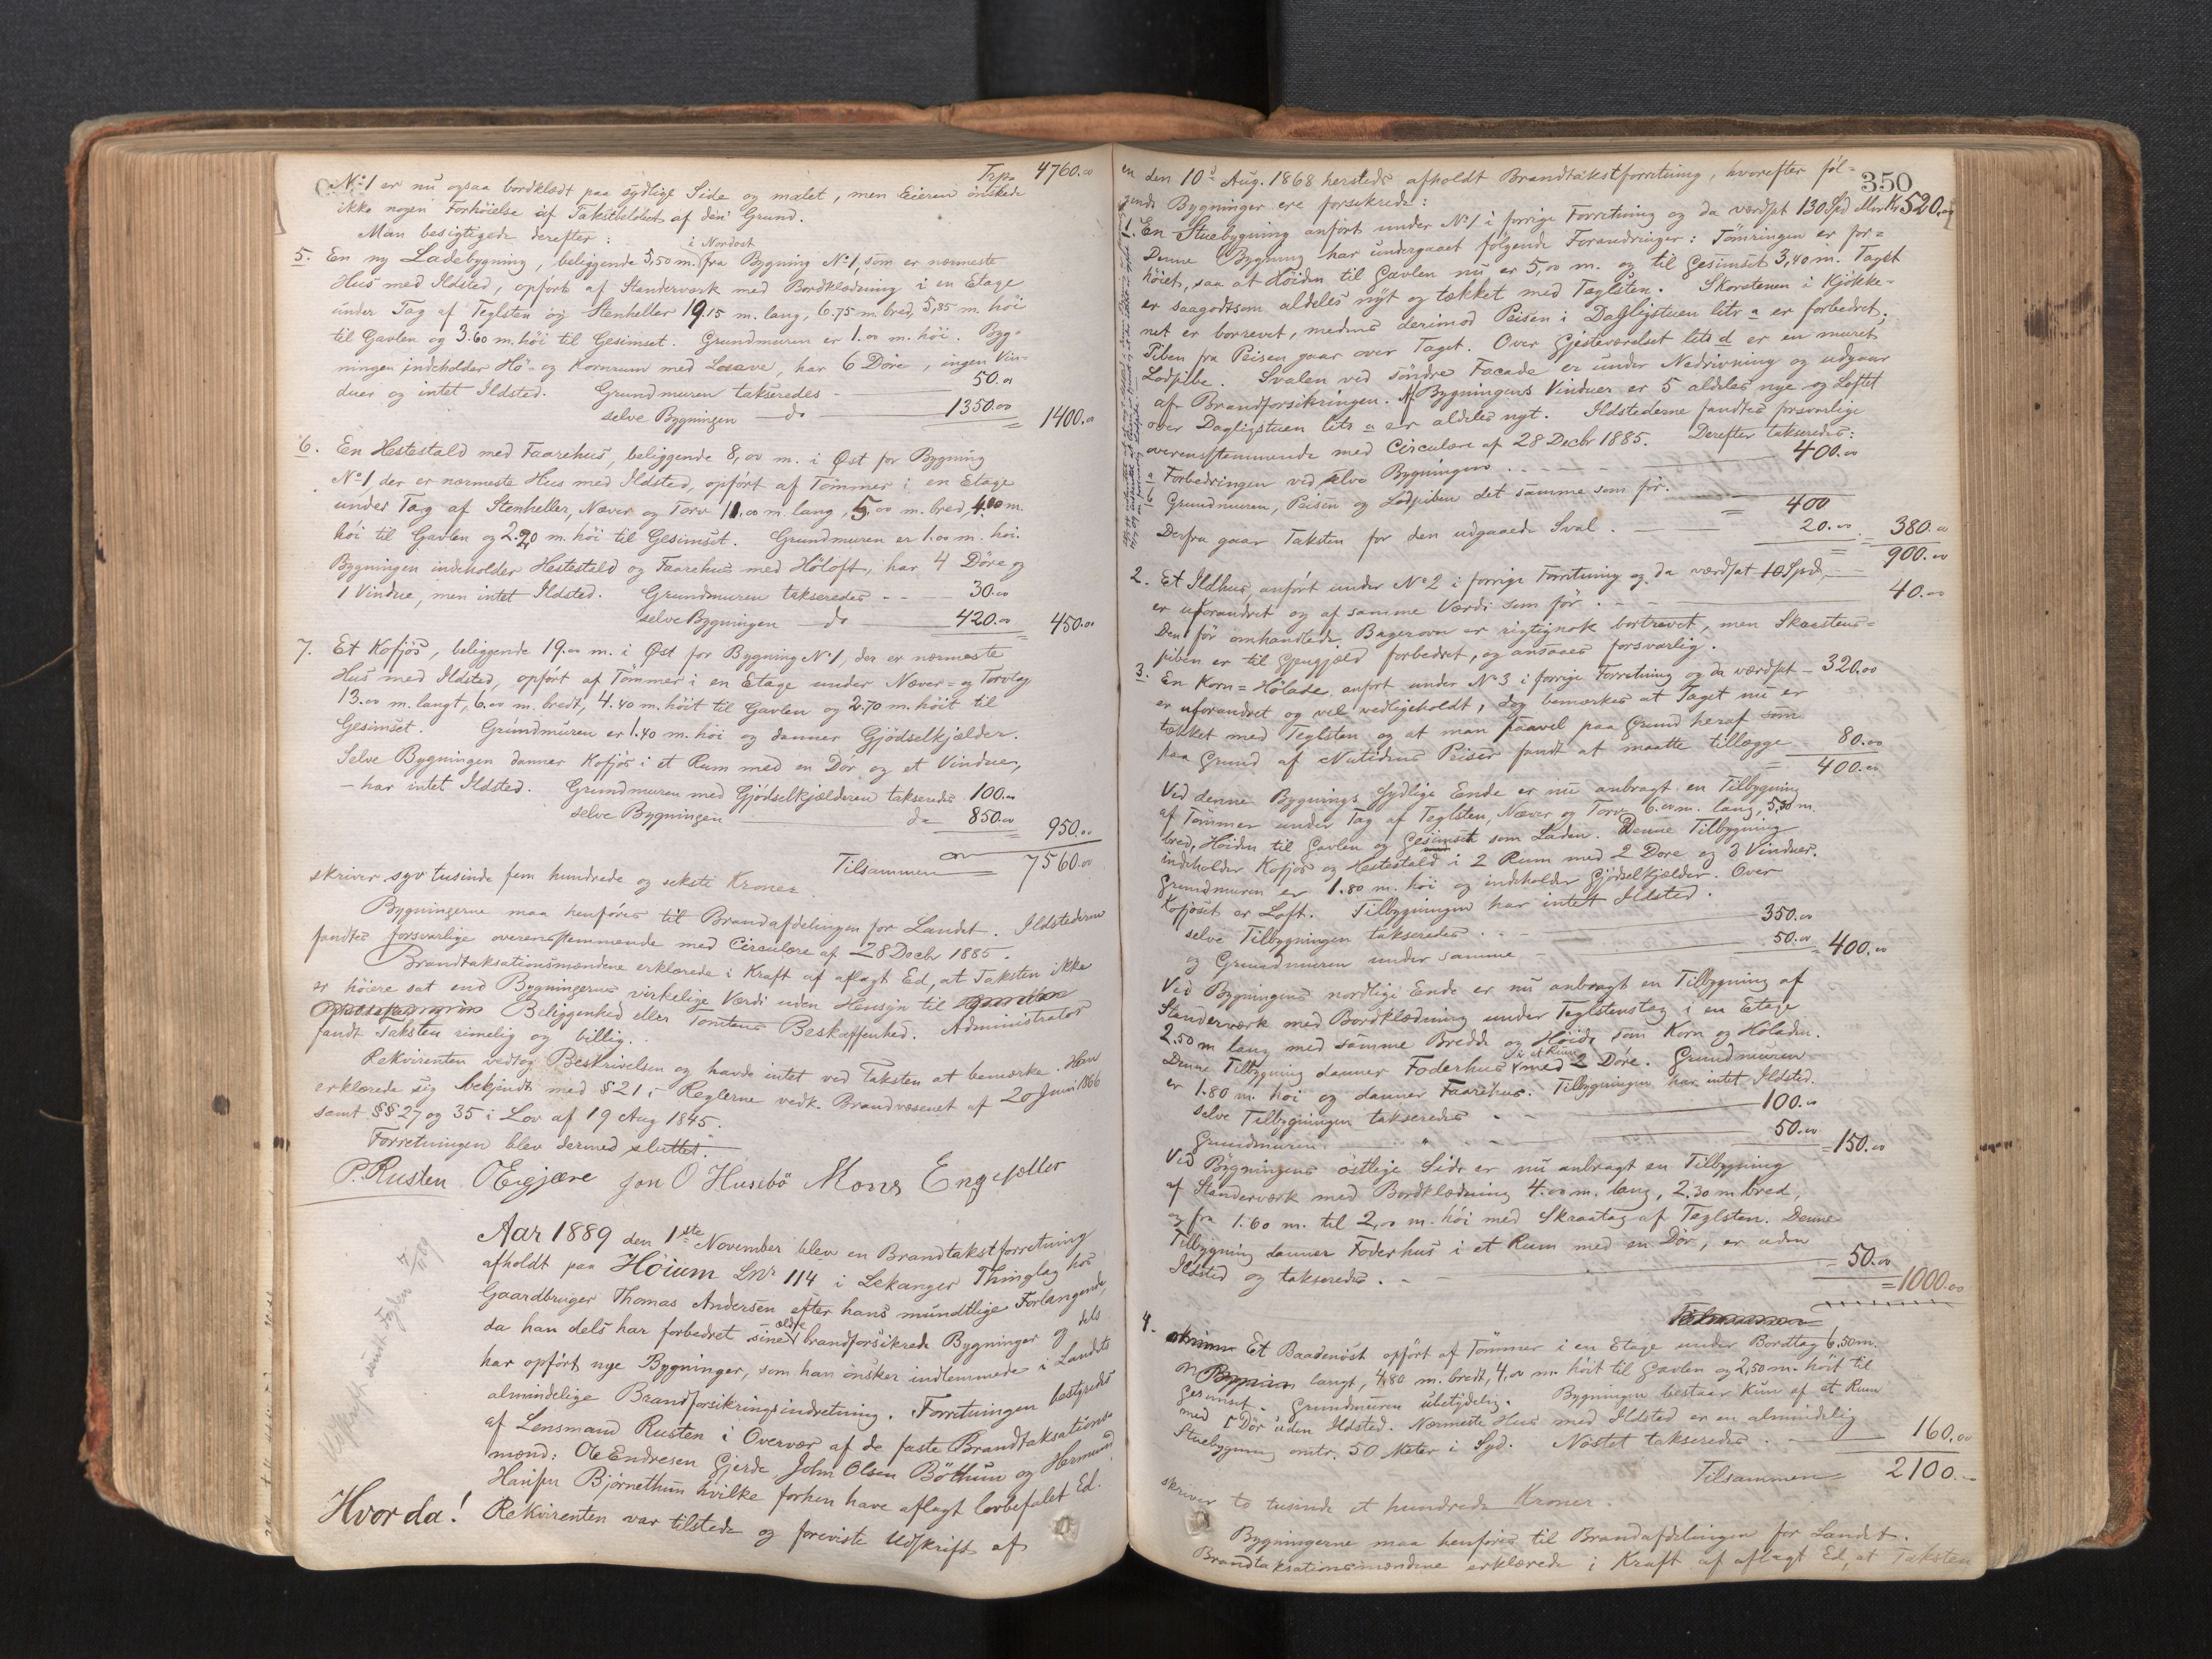 Trp. 4760.00
No 1 er nu ogsaa bordklædt paa sydlige Side og malet, men Eieren önskede
ikke nogen Forhöielse af Takstbelöbet af den Grund.
Man besigtigede derefter:
5. En ny Ladebygning, beliggende 5,50 m. i Nordost fra Bygning No 1, som er nærmeste
Hus med Ildsted, opfört af Standerværk med Bordklædning i en Etage
under Tag af Teglsten og Stenheller 19.15 m. lang, 6.75 m. bred, 5,85 m. höi
til Gavlen og 3.60 m. höi til Gesimset. Grundmuren er 1.00 m. höi. Byg-
ningen indeholder Hö- og Kornrum med Loeave, har 6 Döre, ingen Vin-
duer og intet Ildsted. Grundmuren takseredes - 50.00
selve Bygningen do 1350.00 1400.00
6. En Hestestald med Faarehus, beliggende 8,00 m. i Øst for Bygning
No 1, der er nærmeste Hus med Ildsted, opfört af Tömmer i en Etage
under Tag af Stenheller, Næver og Torv 11.00 m. lang, 5,00 m. bred, 4.00 m.
höi til Gavlen og 2.20 m. höi til Gesimset. Grundmuren er 1.00 m. höi.
Bygningen indeholder Hestestald og Faarehus med Höloft, har 4 Döre og
1 Vindue, men intet Ildsted. Grundmuren takseredes - - 30.00
selve Bygningen do 420.00 450.00
7. Et Kofjös, beliggende 19.00 m. i Øst for Bygning No 1, der er nærmeste
Hus med Ildsted, opfört af Tömmer i en Etage under Næver- og Torvtag
13.00 m. langt, 6.00 m. bredt, 4.40 m. höit til Gavlen og 2.70 m. höit til
Gesimset. Grundmuren er 1.40 m. höi og danner Gjödselkjælder.
Selve Bygningen danner Kofjös i et Rum med en Dör og et Vindue,
- har intet Ildsted. Grundmuren med Gjödselkjælderen takseredes 100.00
selve Bygningen do 850.00 950.00
Tilsammen 7560.00
skriver syv tusinde fem hundrede og seksti Kroner
Bygningerne maa henføres til Brandafdelingen for Landet. Ildstederne
fandtes forsvarlige overensstemmende med Circulære af 28 Decbr 1885.
Brandtaksationsmændene erklærede i Kraft af aflagt Ed, at Taksten ikke
er höiere sat end Bygningernes virkelige Værdi uden Hensyn til
Beliggenhed eller Tomtens Beskaffenhed. Administrator
fandt Taksten rimelig og billig.
Rekvirenten vedtog Beskrivelsen og havde intet ved Taksten at bemærke. Han
erklærede sig bekjendt med § 21 i Reglerne vedk. Brandvæsenet af 20 Juni 1866
samt §§ 27 og 35 i Lov af 19 Aug 1845.
Forretningen blev dermed sluttet.
P. Rusten OEigjære Jon O Husebö Mons Engesæter
Aar 1889 den 1ste November blev en Brandtakstforretning
afholdt paa Höium Lnr 114 i Lekanger Thinglag hos
Gaardbruger Thomas Andersen efter hans mundtlige Forlangende,
da han dels har forbedret sine ældre brandforsikrede Bygninger og dels
har opfört nye Bygninger, som han önsker indlemmede i Landets
almindelige Brandforsikringsindretning. Forretningen bestyredes
af Lensmand Rusten i Overvær af de faste Brandtaksations-
mænd: Ole Endresen Gjerde, John Olsen Böthun og Hermund
Hansen Björnethun hvilke forhen have aflagt lovbefalet Ed.
Hvor da! Rekvirenten var tilstede og foreviste Udskrift af
Udskrift sendt Fogden 7/11 89
350
en den 10d Aug. 1868 hersteds afholdt Brandtakstforretning, hvorefter föl-
gende Bygninger ere forsekrede:
1. En Stuebygning anfört under No 1 i forrige Forretning og da værdsat 130 Spd eller Kr 520.00
Denne Bygning har undergaaet fölgende Forandringer: Tömringen er for-
höiet, saa at Höiden til Gavlen nu er 5,00 m. og til Gesimset 3,40 m. Taget
er saagodtsom aldeles nyt og tækket med Teglsten. Skorstenen i Kjökke-
net er borrevet, medens derimod Peisen i Dagligstuen litr a er forbedret;
Piben fra Peisen gaar over Taget. Over Gjesteværelset litr d er en muret
Lodpibe. Svalen ved söndre Facade er under Nedrivning og udgaar
af Brandforsikringen. Af Bygningens Vinduer er 5 aldeles nye og Loftet
over Dagligstuen litr a er aldeles nyt. Ildstederne fandtes forsvarlige
overensstemmende med Circulære af 28 Decbr 1885. Derefter takseredes:
a Forbedringen ved selve Bygningen 400.00
b Grundmuren, Peisen og Lodpiben det samme som för.
400
Derfra gaar Taksten for den udgaaede Sval. 20.00 380.00
900.00
2. Et Ildhus, anfört under No 2 i forrige Forretning og da værdsat 10 Spd,
er uforandret og af samme Værdi som för. 40.00
Den för omhandlede Bagerovn er rigtignok bortrevet, men Skorstens-
piben er til Gjengjæld forbedret, og ansaaes forsvarlig.
3. En Korn- Hölade, anfört under No 3 i forrige Forretning og da værdsat 320.00
er uforandret og vel vedligeholdt, dog bemærkes at Taget nu er
tækket med Teglsten og at man saavel paa Grund heraf som
paa Grund af Nutidens Priser fandt at maatte tillægge 80.00
400.00
Ved denne Bygnings sydlige Ende er nu anbragt en Tilbygning
af Tömmer under Tag af Teglsten, Næver og Torv 6.00 m. lang, 5,30 m.
bred, Höiden til Gavlen og Gesimset som Laden. Denne Tilbygning
indeholder Kofjös og Hestestald i 2 Rum med 2 Döre og 3 Vinduer.
Grundmuren er 1.80 m. höi og indeholder Gjödselkjælder. Over
Kofjöset er Loft. Tilbygningen har intet Ildsted.
selve Tilbygningen takseredes 350.00
og Grundmuren under samme 50.00 400.00
Ved Bygningens nordlige Ende er nu anbragt en Tilbygning af
Standerværk med Bordklædning under Teglstenstag i en Etage
2.50 m lang med samme Bredde og Höide som Korn og Höladen.
Denne Tilbygning danner Foderhus i et Rum med 2 Döre. Grundmuren
er 1.80 m. höi og danner Faarehus. Tilbygningen har intet Ildsted.
selve Tilbygningen takseredes 100.00
Grundmuren " 50.00 150.00
Ved Bygningens östlige Side er nu anbragt en Tilbygning
af Standerværk med Bordklædning 4.00 m. lang, 2.30 m. bred,
og fra 1.60 m. til 2,00 m. höi med Skraatag af Teglsten. Denne
Tilbygning danner Foderhus i et Rum med en Dör, er uden
Ildsted og takseredes. 50.00
1000.00
4. Et Baadenöst opfört af Tömmer i en Etage under Bordtag 6,50 m.
langt, 4,80 m. bredt, 4,00 m. höit til Gavlen og 2,50 m. höit til
Gesimset. Grundmuren ubetydelig. Bygningen bestaar kun af et Rum
med 1 Dör uden Ildsted. Nærmeste Hus med Ildsted er en almindelig
Stuebygning omtr. 50 Meter i Syd. Nöstet takseredes 160.00
Tilsammen 2100.-
skriver to tusinde et hundrede Kroner.
Bygningerne maa henføres til Brandafdelingen for Landet.
Brandtaksationsmændene erklærede i Kraft af aflagt Ed, at Taksten